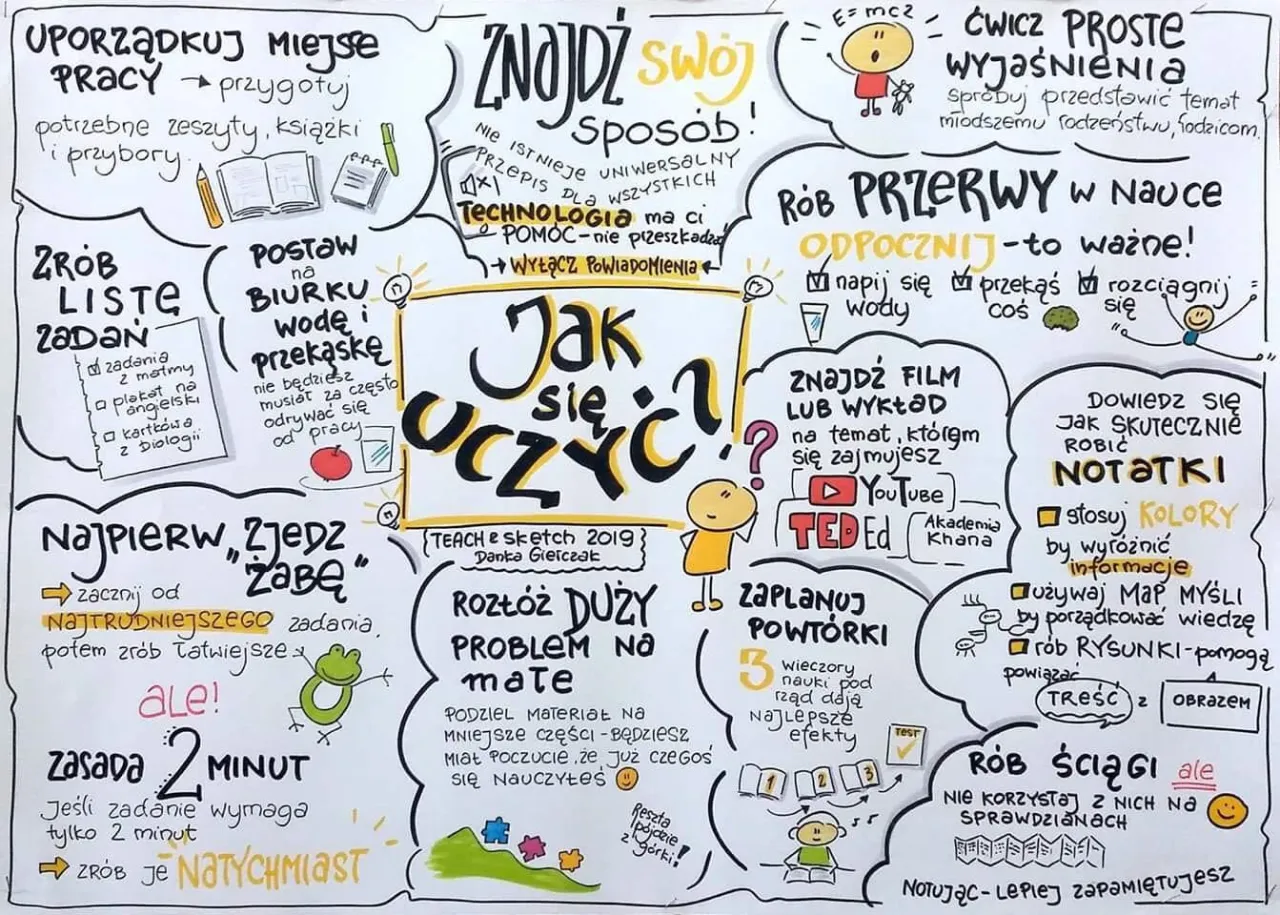 UPORZĄDKUJ MIEJSCE
PRACY → przygotuj
potrzebne zeszyty, książki
i przybory.
ZNAJDŹ SWÓJ
SPOSÓB!
NIE ISTNIEJE UNIWERSALNY
PRZEPIS DLA WSZYSTKICH
TECHNOLOGIA ma ci
POMÓC - nie przeszkadzać
→ WYŁĄCZ POWIADOMIENIA ←
E=mc2
ĆWICZ PROSTE
WYJAŚNIENIA
spróbuj przedstawić temat
młodszemu rodzeństwu, rodzicom.
RÓB PRZERWY W NAUCE
ODPOCZNIJ - to ważne!
☑ napij się
wody
☑ przekąś
coś
☑ rozciągnij
się
ZRÓB
LISTĘ
ZADAŃ
☑ zadania
z matmy
□ plakat na
angielski
□ kartkówka
z biologii
POSTAW
na
BIURKU
wodę i
przekąskę
nie będziesz
musiał za często
odrywać się
od pracy
JAK
się
UCZYĆ?
TEACH e sketch 2019
Danka Gierczak
?
ZNAJDŹ FILM
LUB WYKŁAD
na temat, którym
się zajmujesz
YouTube
TED Ed
Akademia
Khana
DOWIEDZ SIĘ
JAK SKUTECZNIE
ROBIĆ
NOTATKI
stosuj KOLORY
by wyróżnić
informacje
używaj MAP MYŚLI
by porządkować wiedzę
rób RYSUNKI - pomogą
powiązać
TREŚĆ z OBRAZEM
NAJPIERW „ZJEDZ
ŻABĘ"
zacznij od
NAJTRUDNIEJSZEGO zadania,
potem zrób łatwiejsze
ale!
ZASADA 2 MINUT
Jeśli zadanie wymaga
tylko 2 minut
ZRÓB JE NATYCHMIAST
ROZŁÓŻ DUŻY
PROBLEM NA
małe
PODZIEL MATERIAŁ NA
MNIEJSZE CZĘŚCI - BĘDZIESZ
MIAŁ POCZUCIE, ŻE JUŻ CZEGOŚ
SIĘ NAUCZYŁEŚ
Reszta
pójdzie
z górki!
ZAPLANUJ
POWTÓRKI
3 wieczory
nauki pod
rząd dają
NAJLEPSZE
efekty
TEST
1 2 3
RÓB ŚCIĄGI ale
NIE KORZYSTAJ Z NICH NA
SPRAWDZIANACH
NOTUJĄC - LEPIEJ ZAPAMIĘTUJESZ